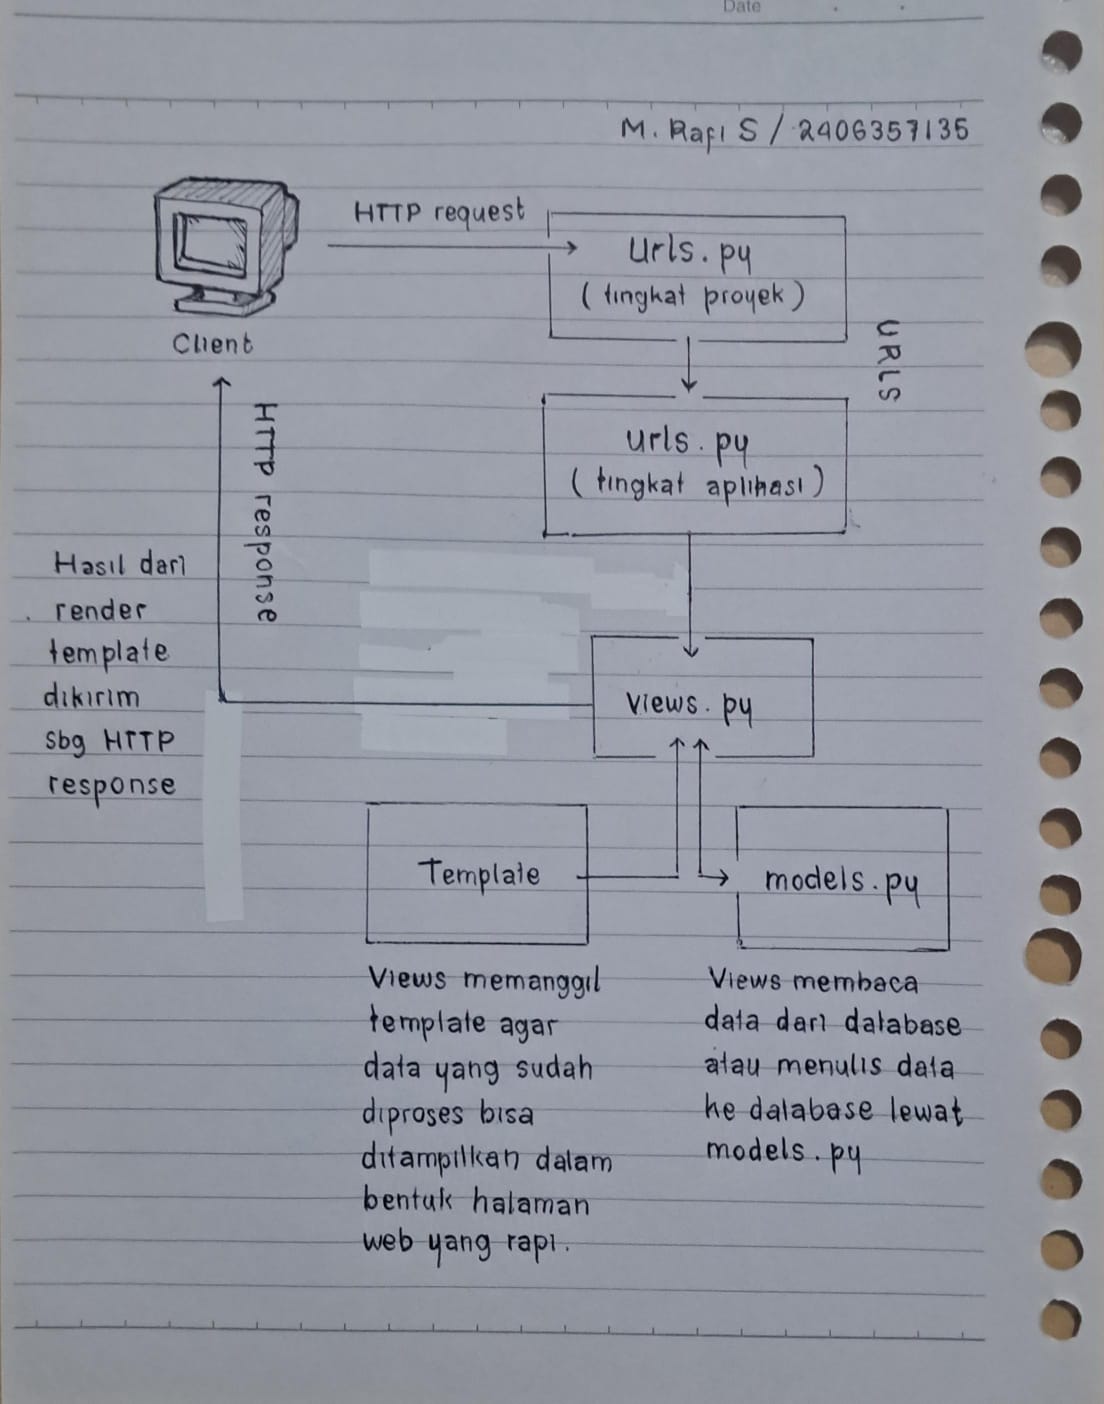 Date
M. Rafi S / 2406357135
HTTP request
urls.py
(tingkat proyek)
Client
URLS
urls.py
(tingkat aplikasi)
HTTP response
Hasil dari
render
template
dikirim
sbg HTTP
response
views.py
Template
models.py
Views memanggil
template agar
data yang sudah
diproses bisa
ditampilkan dalam
bentuk halaman
web yang rapi.
Views membaca
data dari database
atau menulis data
ke database lewat
models.py